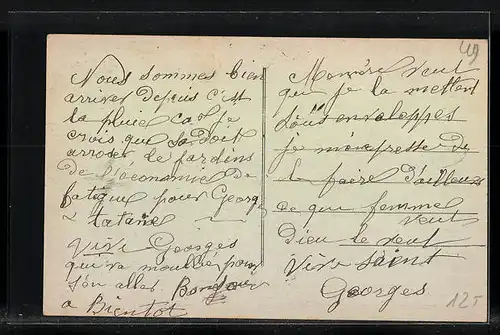 49
Nous sommes bien
arriver depuis c'est
la pluie car je
crois que sa doit
arroser le jardins
de l'economie de
fatigue pour Georg
- tatane
Vive Georges
qui va mouiller pour
s'en aller Bonjour
a Bientot
Ma mère veut
que je la mettent
sous enveloppes
je m'enpresse de
le faire d'ailleurs
ce que femme
veut
Dieu le veut
Vive saint
Georges
125